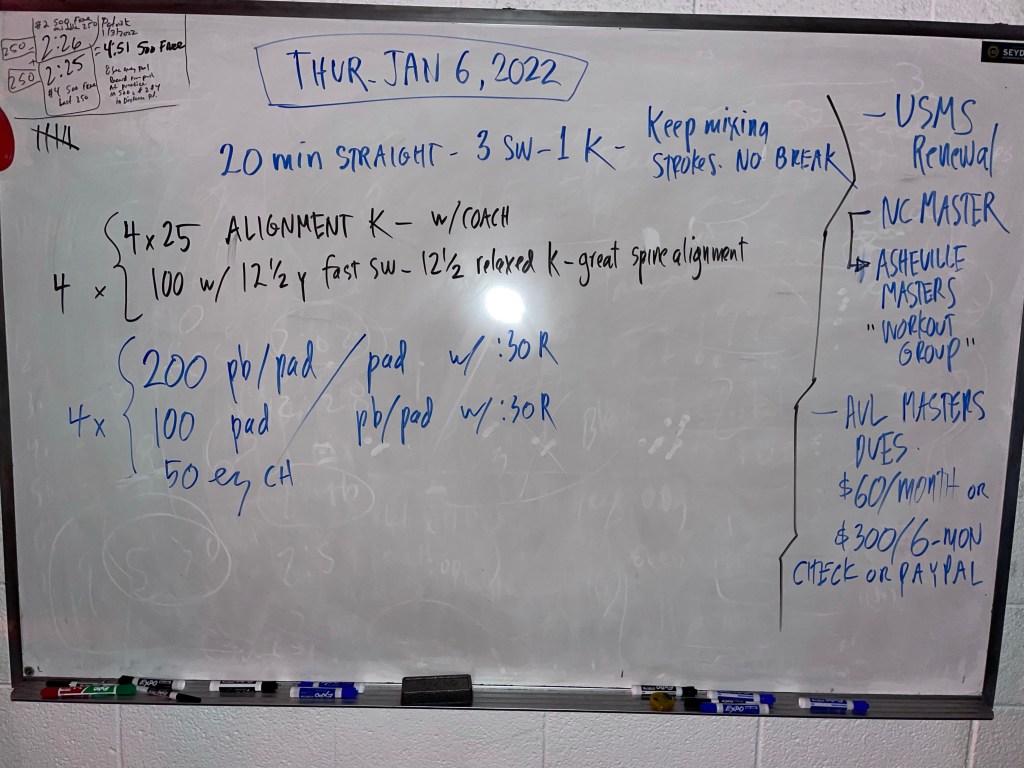 #2 500 Free
250
2:26
= 4:51 500 FREE
250
2:25
#4 500 Free
last 250
THUR. JAN 6, 2022
20 min STRAIGHT - 3 SW - 1 K - Keep mixing
STROKES. NO BREAK
4 x
4 x 25 ALIGNMENT K - w/COACH
100 w/ 12 1/2 y fast SW - 12 1/2 relaxed K - great spine alignment
4x
200 pb/pad / pad w/ :30 R
100 pad / pb/pad w/ :30R
50 ez CH
- USMS
Renewal
- NC MASTER
ASHEVILLE
MASTERS
"WORKOUT
GROUP"
- AVL MASTERS
DUES.
$60/MONTH OR
$300/6-MON
CHECK OR PAYPAL
SEYD
EXPO
EXPO
EXPO